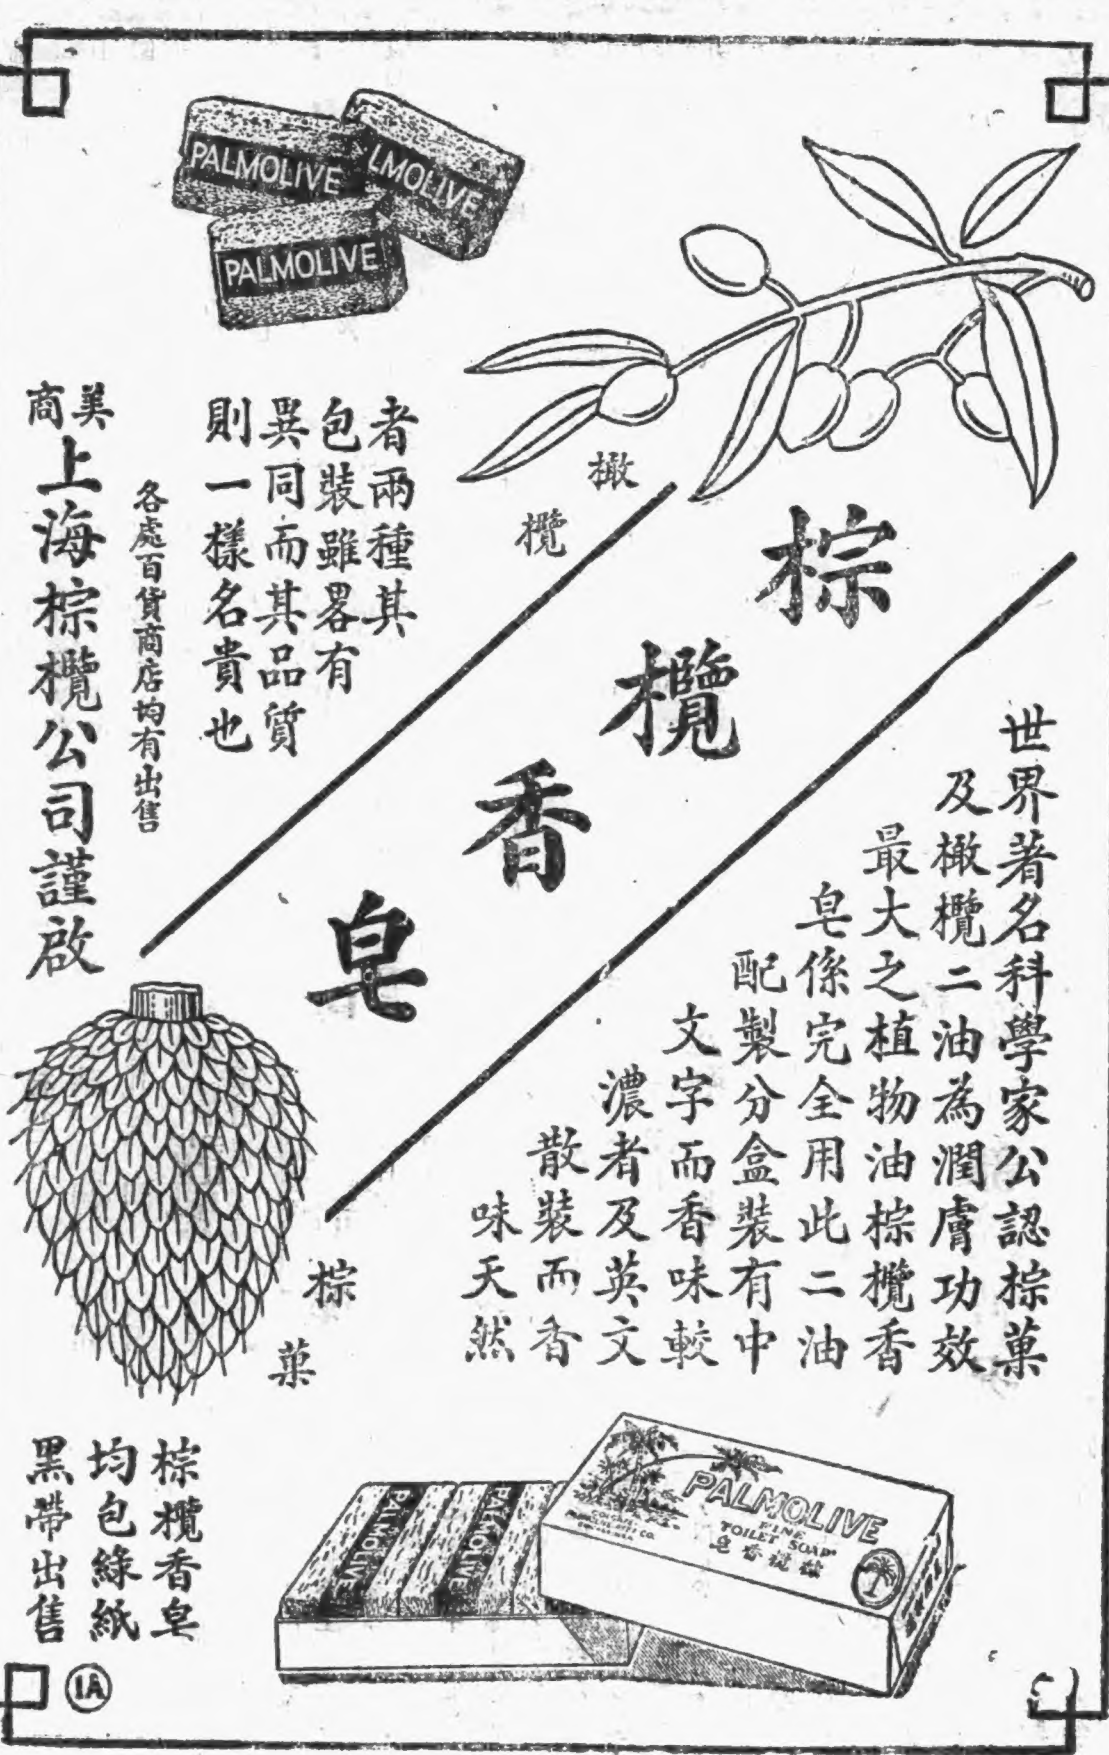 PALMOLIVE
LMOLIVE
PALMOLIVE
橄欖
棕欖香皂
世界著名科學家公認棕菓
及橄欖二油為潤膚功效
最大之植物油棕欖香
皂係完全用此二油
配製分盒裝有中
文字而香味較
濃者及英文
散裝而香
味天然
者兩種其
包裝雖畧有
異同而其品質
則一樣名貴也
各處百貨商店均有出售
美商上海棕欖公司謹啟
棕菓
棕欖香皂
均包綠紙
黑帶出售
PALMOLIVE
PALMOLIVE
PALMOLIVE
FINE
TOILET SOAP
皂香欖棕
1A